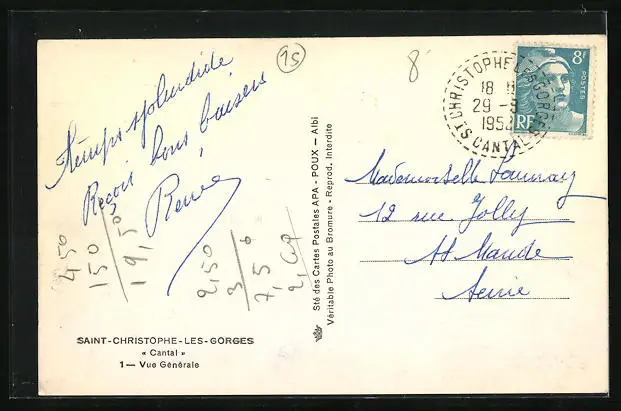 Temps splendide
Reçois bons baisers
Renée
15
8
4,50
150
3
19,50
2,50
3
7,50
SAINT-CHRISTOPHE-LES-GORGES
« Cantal »
1— Vue Générale
Sté des Cartes Postales APA - POUX — Albi
Véritable Photo au Bromure - Reprod. Interdite
ST CHRISTOPHE LES GORGES
18 H
29 -
1952
CANTAL
8F
POSTES
RF
Mademoiselle Launay
12 rue Jolly
St Mandé
Seine